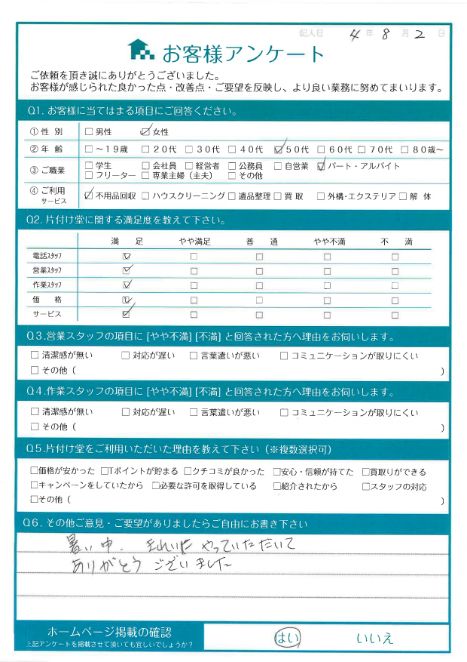 記入日 4 年 8 月 2 日
お客様アンケート
ご依頼を頂き誠にありがとうございました。
お客様が感じられた良かった点・改善点・ご要望を反映し、より良い業務に努めてまいります。
Q1. お客様に当てはまる項目にご回答ください。
①性 別 □男性 ☑女性
②年 齢 □～19歳 □20代 □30代 □40代 ☑50代 □60代 □70代 □80歳～
③ご職業 □学生 □会社員 □経営者 □公務員 □自営業 ☑パート・アルバイト
□フリーター □専業主婦(主夫) □その他
④ご利用サービス ☑不用品回収 □ハウスクリーニング □遺品整理 □買取 □外構・エクステリア □解体
Q2. 片付け堂に関する満足度を教えて下さい。
満 足 やや満足 普 通 やや不満 不 満
電話スタッフ ☑ □ □ □ □
営業スタッフ ☑ □ □ □ □
作業スタッフ ☑ □ □ □ □
価 格 ☑ □ □ □ □
サービス ☑ □ □ □ □
Q3. 営業スタッフの項目に [やや不満] [不満] と回答された方へ理由をお伺いします。
□清潔感が無い □対応が遅い □言葉遣いが悪い □コミュニケーションが取りにくい
□その他 ( )
Q4. 作業スタッフの項目に [やや不満] [不満] と回答された方へ理由をお伺いします。
□清潔感が無い □対応が遅い □言葉遣いが悪い □コミュニケーションが取りにくい
□その他 ( )
Q5. 片付け堂をご利用いただいた理由を教えて下さい (※複数選択可)
□価格が安かった □Tポイントが貯まる □クチコミが良かった □安心・信頼が持てた □買取りができる
□キャンペーンをしていたから □必要な許可を取得している □紹介されたから □スタッフの対応
□その他 ( )
Q6. その他ご意見・ご要望がありましたらご自由にお書き下さい
暑い中、きれいにやっていただいて
ありがとうございました
ホームページ掲載の確認 はい いいえ
上記アンケートを掲載させて頂いても宜しいでしょうか?